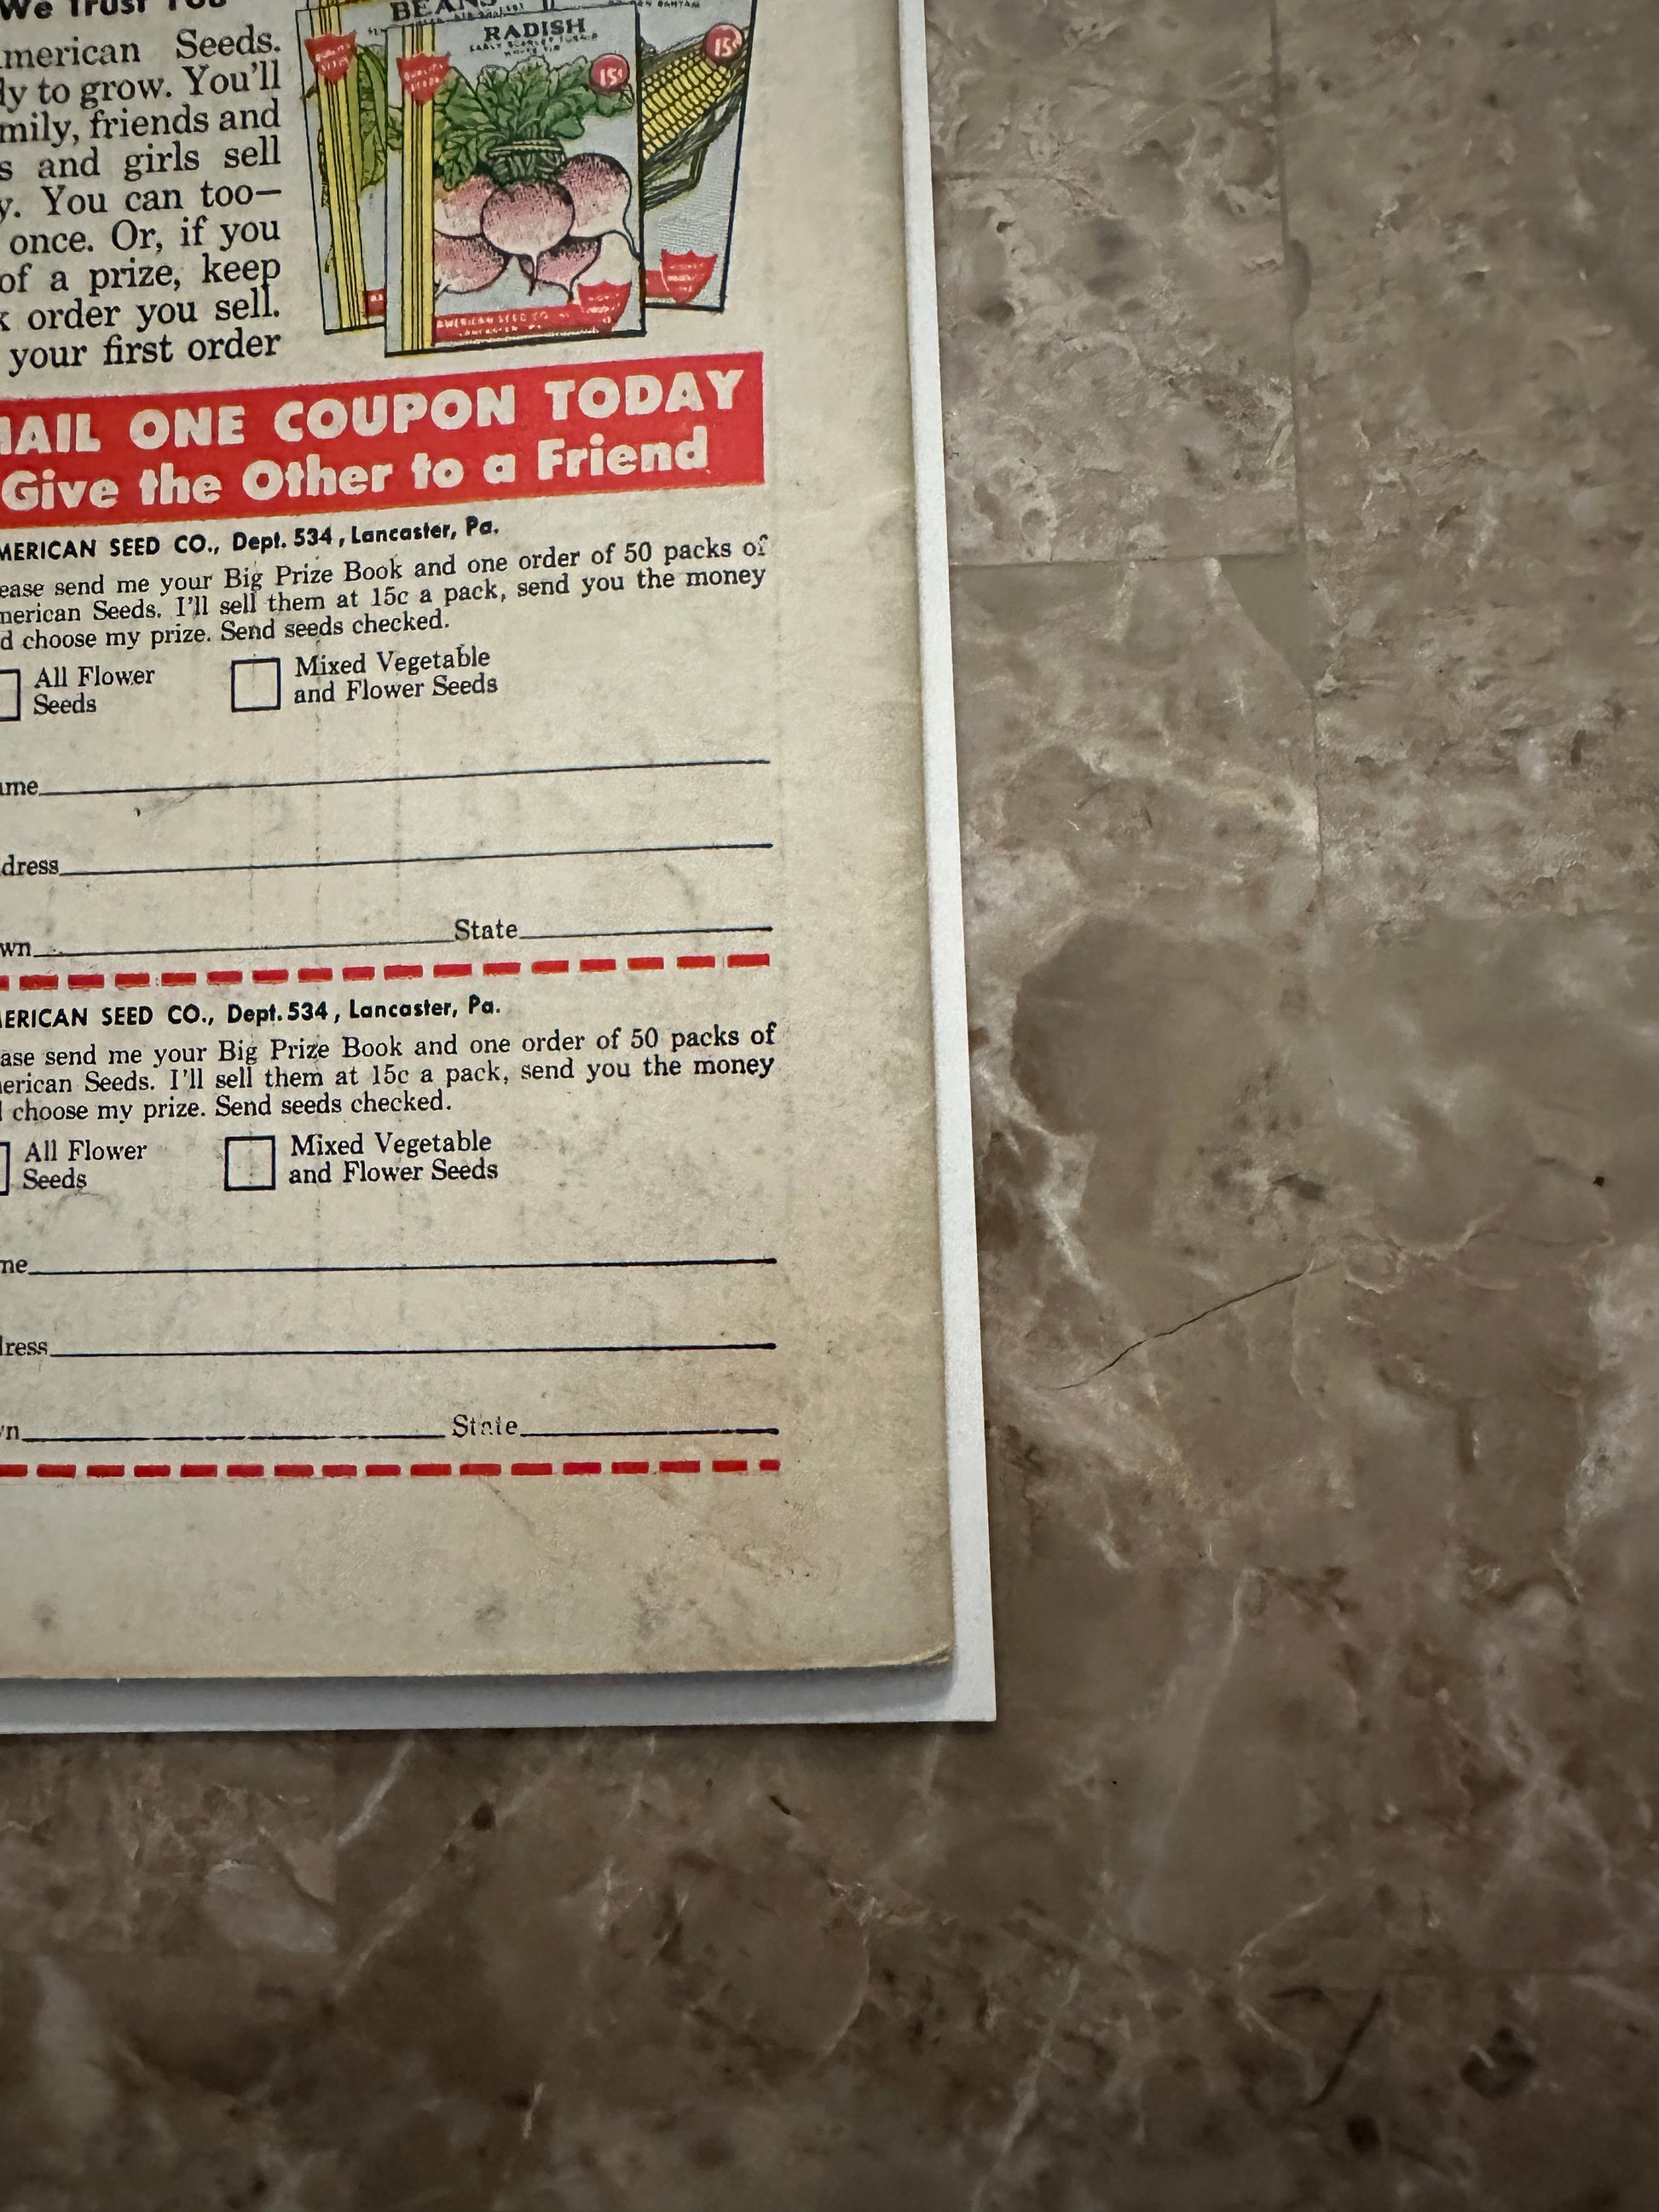 We Trust You
merican Seeds.
ly to grow. You'll
mily, friends and
s and girls sell
y. You can too—
once. Or, if you
of a prize, keep
k order you sell.
your first order
BEANS
RADISH
EARLY SCARLET TURNIP
WHITE TIP
15¢
15¢
AMERICAN SEED CO.
LANCASTER, PA.
MAIL ONE COUPON TODAY
Give the Other to a Friend
MERICAN SEED CO., Dept. 534, Lancaster, Pa.
ease send me your Big Prize Book and one order of 50 packs of
merican Seeds. I'll sell them at 15c a pack, send you the money
d choose my prize. Send seeds checked.
All Flower
Seeds
Mixed Vegetable
and Flower Seeds
ame
dress
wn State
MERICAN SEED CO., Dept. 534, Lancaster, Pa.
ase send me your Big Prize Book and one order of 50 packs of
erican Seeds. I'll sell them at 15c a pack, send you the money
d choose my prize. Send seeds checked.
All Flower
Seeds
Mixed Vegetable
and Flower Seeds
me
dress
wn State